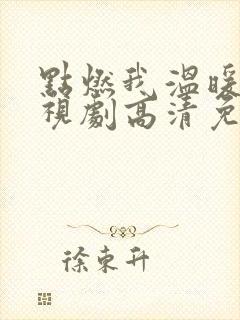 點燃我溫暖
視劇高清免
徐東升